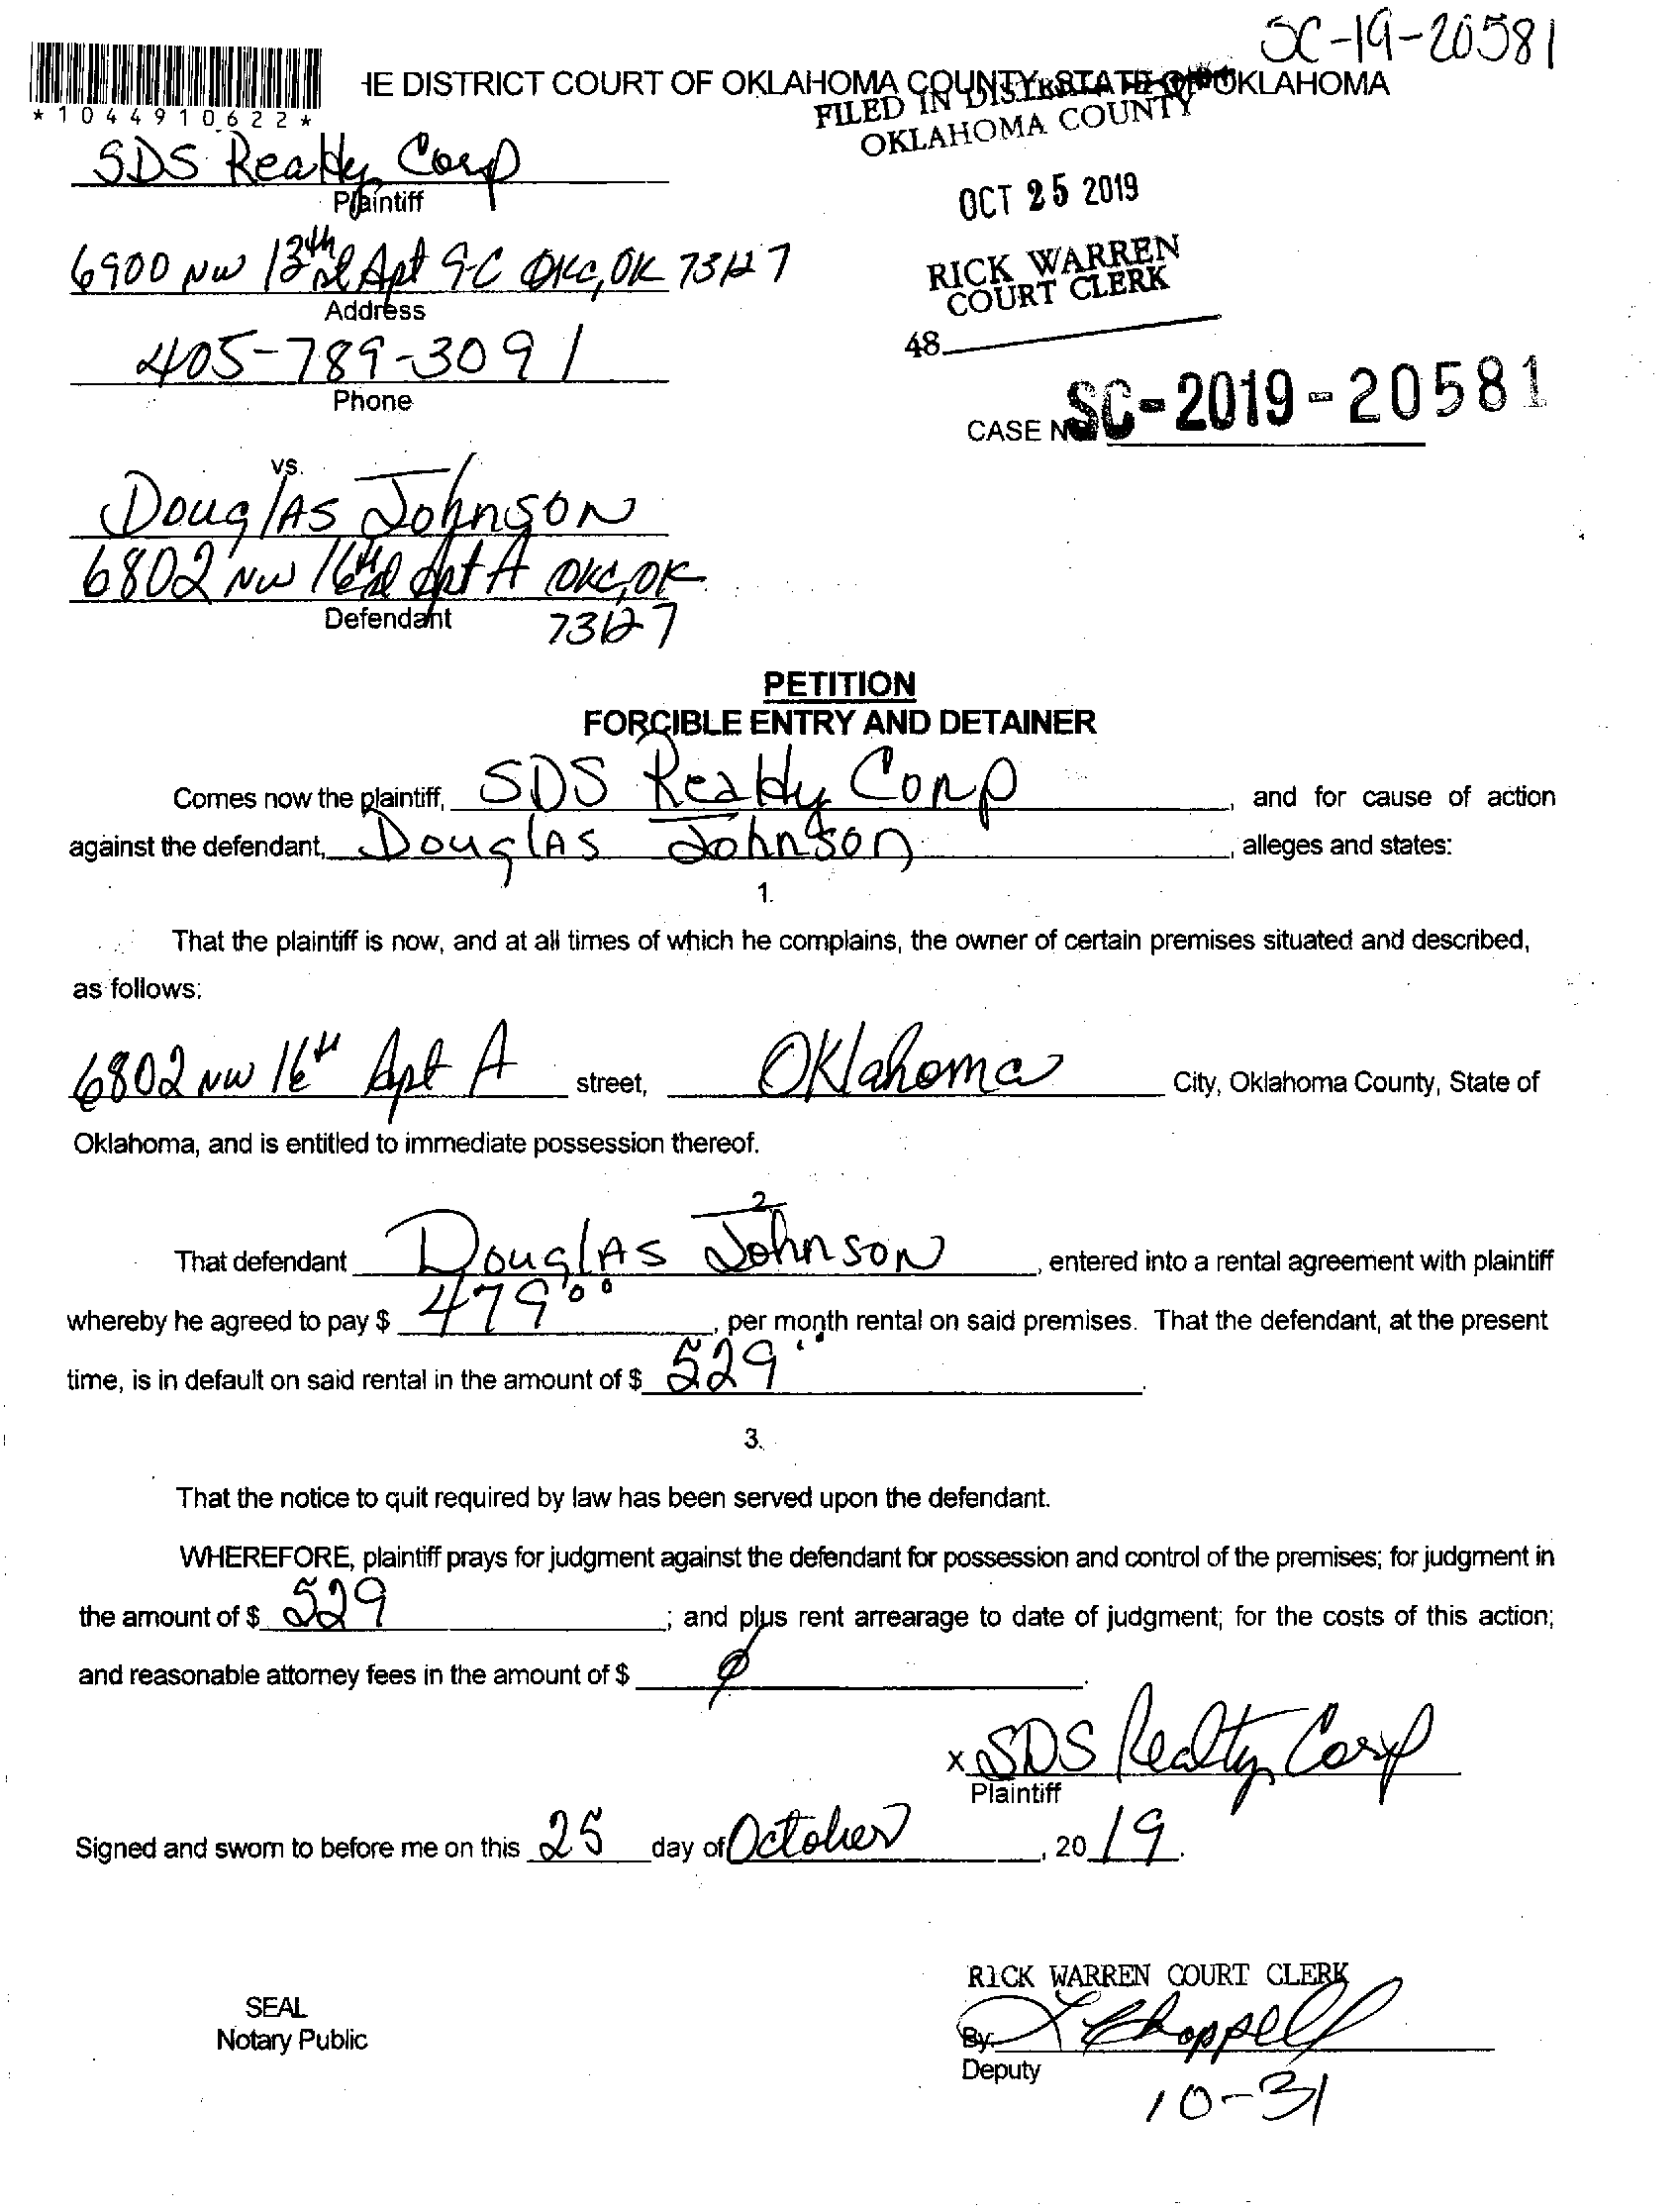 SC-19-20581
HE DISTRICT COURT OF OKLAHOMA COUNTY, STATE OF OKLAHOMA
*1044910622*
FILED IN DISTRICT COURT
OKLAHOMA COUNTY
SDS Realty Corp
Plaintiff
OCT 25 2019
6900 NW 13th st Apt 9-C OKC, OK 73127
Address
RICK WARREN
COURT CLERK
405-789-3091
Phone
48
CASE NO. SC-2019-20581
vs.
Douglas Johnson
6802 NW 16th st Apt A OKC, OK
Defendant
73127
PETITION
FORCIBLE ENTRY AND DETAINER
Comes now the plaintiff, SDS Realty Corp, and for cause of action
against the defendant, Douglas Johnson, alleges and states:
1.
That the plaintiff is now, and at all times of which he complains, the owner of certain premises situated and described,
as follows:
6802 NW 16th Apt A street, Oklahoma City, Oklahoma County, State of
Oklahoma, and is entitled to immediate possession thereof.
2.
That defendant Douglas Johnson, entered into a rental agreement with plaintiff
whereby he agreed to pay $ 479 00, per month rental on said premises. That the defendant, at the present
time, is in default on said rental in the amount of $ 529 00.
3.
That the notice to quit required by law has been served upon the defendant.
WHEREFORE, plaintiff prays for judgment against the defendant for possession and control of the premises; for judgment in
the amount of $ 529; and plus rent arrearage to date of judgment; for the costs of this action;
and reasonable attorney fees in the amount of $ 0.
x SDS Realty Corp
Plaintiff
Signed and sworn to before me on this 25 day of October, 2019.
RICK WARREN COURT CLERK
SEAL
Notary Public
By: L Chappell
Deputy
10-31